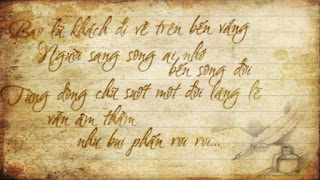 Bao lữ khách đi về trên bến vắng
Người sang sông ai nhớ
bến sông đời
Từng dòng chữ suốt một đời lặng lẽ
vẫn âm thầm
như bụi phấn rơi rơi...